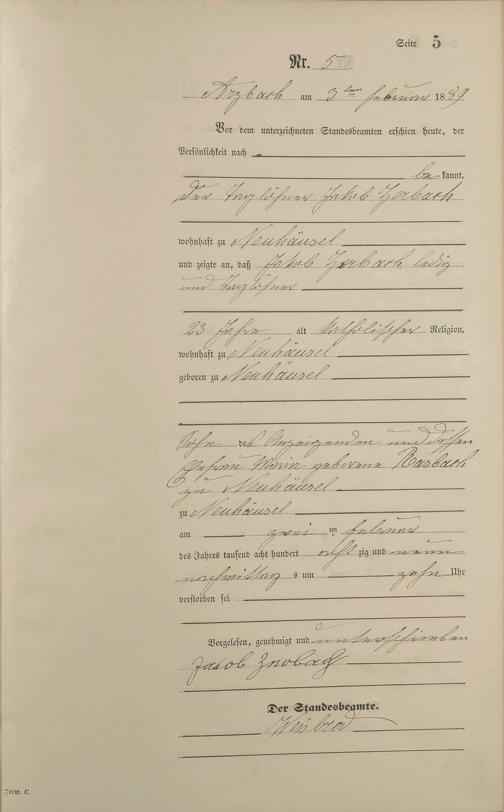 Seite 5
Nr. 5
Arzbach am 3ten Februar 1889
Vor dem unterzeichneten Standesbeamten erschien heute, der
Persönlichkeit nach
bekannt,
der Taglöhner Jakob Zerbach
wohnhaft zu Neuhäusel
und zeigte an, daß Jakob Zerbach ledig
und Taglöhner
23 Jahre alt katholischer Religion,
wohnhaft zu Neuhäusel
geboren zu Neuhäusel
Sohn des Anzeigenden und dessen
Ehefrau Maria geborene Rasbach
zu Neuhäusel
zu Neuhäusel
am zwei ten Februar
des Jahres tausend acht hundert acht zig und neun
nachmittag s um zehn Uhr
verstorben sei
Vorgelesen, genehmigt und unterschrieben
Jacob
Der Standesbeamte.
Weisbrod
Form. C.